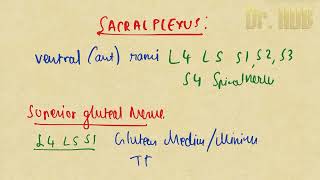 Dr. HUB
SACRAL PLEXUS:
ventral (ant) rami L4 L5 S1, S2, S3
S4 Spinal nerve
Superior gluteal Nerve
L4 L5 S1 Gluteus Medius/Minimu